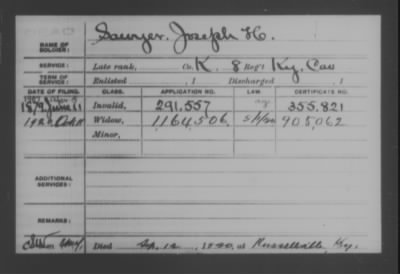 NAME OF SOLDIER: Sawyer, Joseph H.
SERVICE: Late rank, Co. K. 8 Reg't Ky. Cav
TERM OF SERVICE: Enlisted , 1 Discharged , 1
DATE OF FILING. CLASS. APPLICATION NO. LAW. CERTIFICATE NO.
1879 June 11 Invalid, 291,557 355.821
1920 Oct Widow, 1,164,506, 905,062
Minor,
ADDITIONAL SERVICES:
REMARKS:
Died Sep. 12, 1920, at Russellville, Ky.